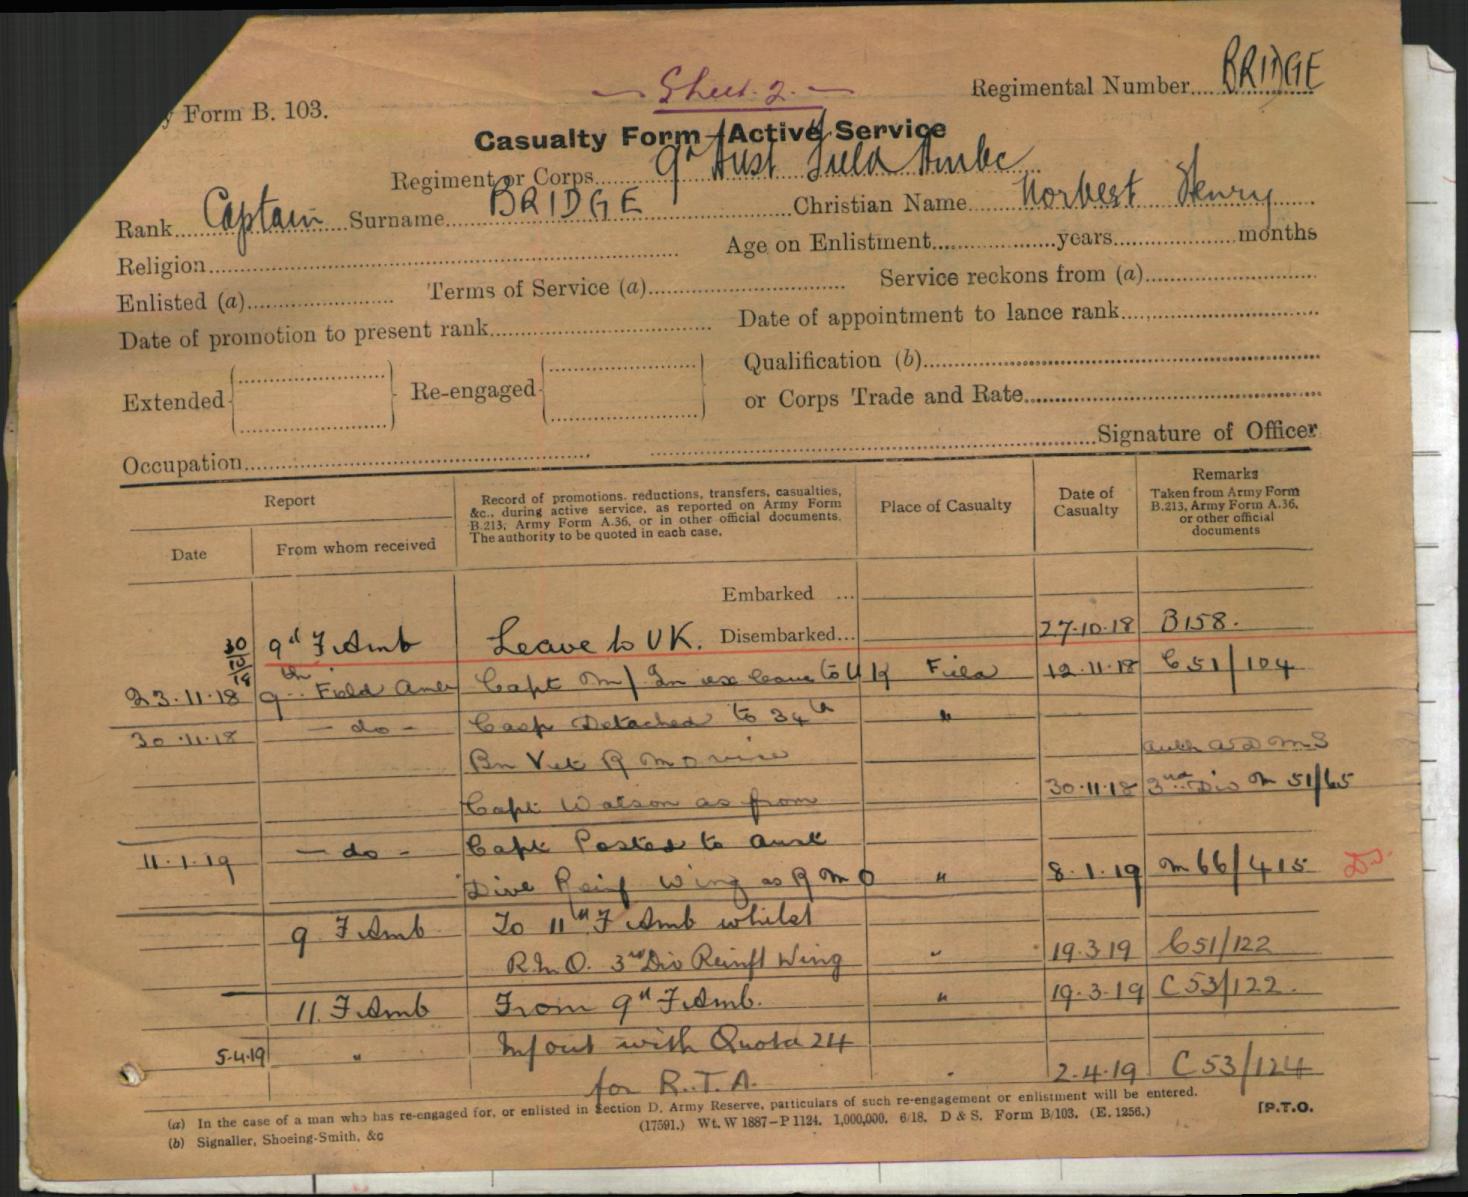 Sheet. 2.
Regimental Number.... BRIDGE
y Form B. 103.
Casualty Form Active Service
Regiment or Corps.... 9th Aust Field Ambce
Rank.... Captain Surname.... BRIDGE Christian Name.... Norbest Henry
Religion.... Age on Enlistment.... years.... months
Enlisted (a).... Terms of Service (a).... Service reckons from (a)....
Date of promotion to present rank.... Date of appointment to lance rank....
Extended Re-engaged Qualification (b)....
or Corps Trade and Rate....
Occupation.... Signature of Officer
Report
Date
From whom received
Record of promotions, reductions, transfers, casualties,
&c., during active service, as reported on Army Form
B.213, Army Form A.36, or in other official documents.
The authority to be quoted in each case.
Place of Casualty
Date of
Casualty
Remarks
Taken from Army Form
B.213, Army Form A.36,
or other official
documents
Embarked ...
30/10/18 9th F Amb Leave to UK. Disembarked... 27.10.18 B158.
23.11.18 9th Field Amb Capt M/In ex leave to UK Field 12.11.18 C51/104
30.11.18 — do — Capt Detached to 34th "
Bn Vict R M O vice auth A D M S
Capt Watson as from 30.11.18 3rd Div M 51/65
11.1.19 — do — Capt Posted to Aust
Dive Reinf Wing as R M O " 8.1.19 M 66/415
9 F Amb To 11th F Amb whilst
R.M.O. 3rd Div Reinft Wing " 19.3.19 C51/122
11. F Amb From 9th F Amb. " 19.3.19 C53/122.
5.4.19 " M/out with Quota 24
for R.T.A. 2.4.19 C53/124
(a) In the case of a man who has re-engaged for, or enlisted in Section D. Army Reserve, particulars of such re-engagement or enlistment will be entered.
(b) Signaller, Shoeing-Smith, &c (17591.) Wt. W 1887–P 1124. 1,000,000. 6/18. D & S. Form B/103. (E. 1256.) [P.T.O.